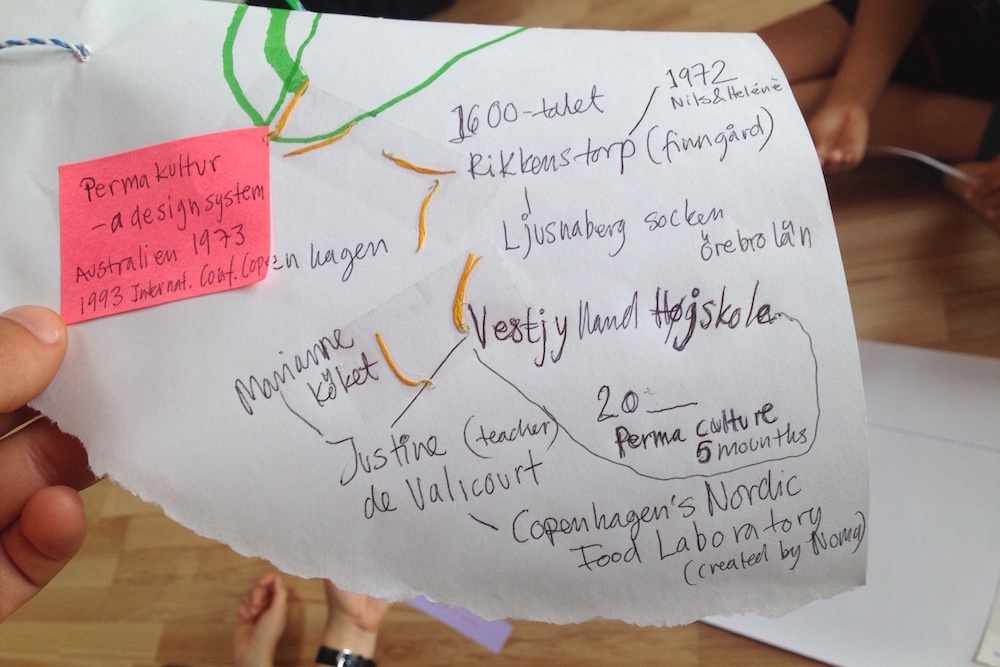 Permakultur
- a design system
Australien 1973
1993 Internat. Conf. Copenhagen
1972
Nils & Heléne
1600-talet
Rikkenstorp (finngård)
Ljusnaberg socken
örebro län
Vestjylland Højskole
20__
Perma culture
5 mounths
Marianne
köket
Justine (teacher)
de Valicourt
Copenhagen's Nordic
Food Laboratory
(created by Noma)